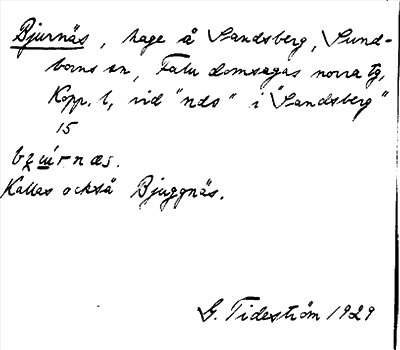 Bjurnäs, hage å Sandsberg, Sund-
borns sn, Falu domsagas norra tg,
Kopp. l, vid "nds" i "Sandsberg"
15
Kallas också Bjuggnäs.
G. Tideström 1929